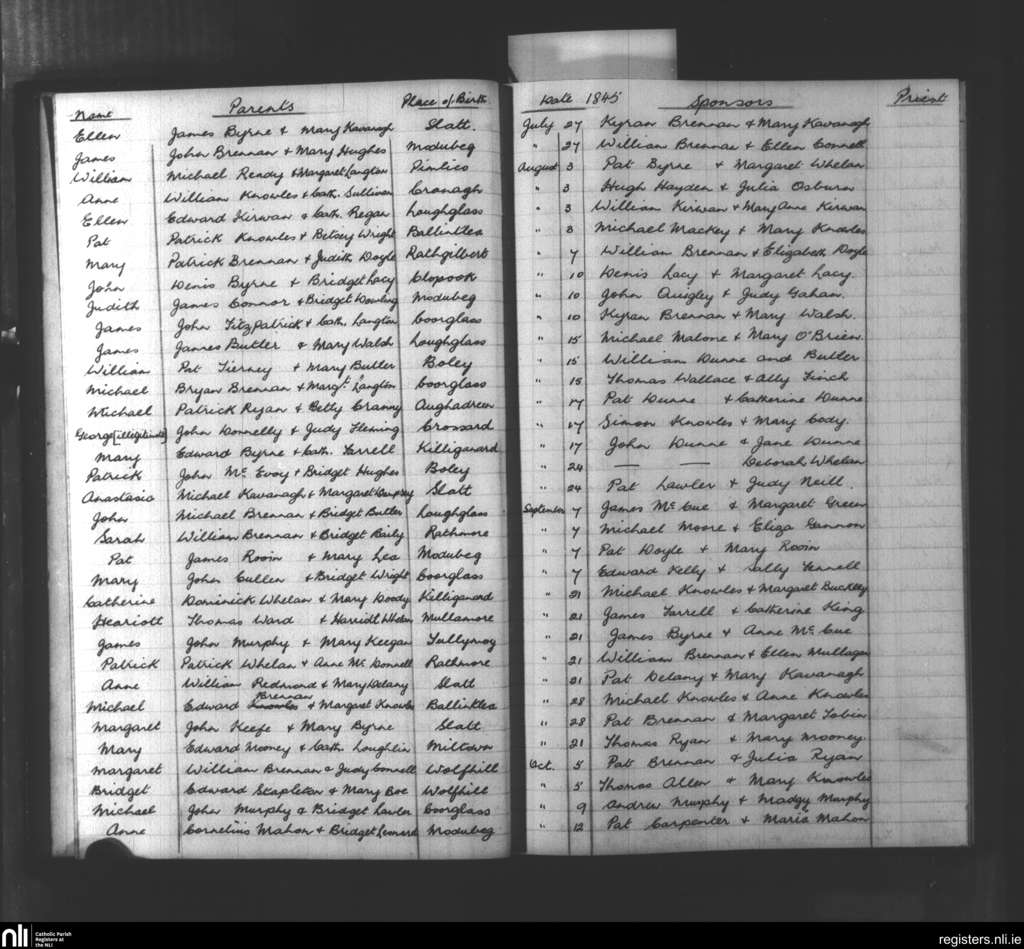 Name Parents Place of Birth Date 1845 Sponsors Priest
Ellen James Byrne & Mary Kavanagh Slatt. July 27 Kyran Brennan & Mary Kavanagh
James John Brennan & Mary Hughes Modubeg " 27 William Brennan & Ellen Connell
William Michael Ready & Margaret Langton Pimlico August 3 Pat Byrne & Margaret Whelan
Anne William Knowles & Cath. Sullivan Cronagh " 3 Hugh Hayden & Julia Osburn
Ellen Edward Kirwan & Cath. Regan Loughglass " 3 William Kirwan & Mary Anne Kirwan
Pat Patrick Knowles & Betsey Wright Ballintlea " 3 Michael Mackey & Mary Knowles
Mary Patrick Brennan & Judith Doyle Rathgilbert " 7 William Brennan & Elizabeth Doyle
John Denis Byrne & Bridget Lacy Clopook " 10 Denis Lacy & Margaret Lacy.
Judith James Connor & Bridget Dowling Modubeg " 10 John Quigley & Judy Gahan.
James John Fitzpatrick & Cath. Langton Coorglass " 10 Kyran Brennan & Mary Walsh.
James James Butler & Mary Walsh Loughglass " 15 Michael Malone & Mary O'Brien.
William Pat Tierney & Mary Butler Boley " 15 William Dunne and Butler
Michael Bryan Brennan & Margt. Langton Coorglass " 15 Thomas Wallace & Ally Finch
Michael Patrick Ryan & Betty Cranny Aughadreen " 17 Pat Dunne & Catherine Dunne
George [illegitimate] John Donnelly & Judy Fleming Crossard " 17 Simon Knowles & Mary Cody.
Mary Edward Byrne & Cath. Farrell Killiganard " 17 John Dunne & Jane Dunne
Patrick John Mc Evoy & Bridget Hughes Boley " 24 — — Deborah Whelan
Anastasia Michael Kavanagh & Margaret Dempsey Slatt " 24 Pat Lawler & Judy Neill.
John Michael Brennan & Bridget Butler Loughglass September 7 James Mc Cue & Margaret Green
Sarah William Brennan & Bridget Baily Rathmore " 7 Michael Moore & Eliza Gannon
Pat James Rooin & Mary Lea Modubeg " 7 Pat Doyle & Mary Rooin
Mary John Cullen & Bridget Wright Coorglass " 7 Edward Kelly & Sally Fennell
Catherine Dominick Whelan & Mary Doody Killiganard " 21 Michael Knowles & Margaret Buckley
Heariott Thomas Ward & Harriott Whelan Mullamore " 21 James Farrell & Catherine King
James John Murphy & Mary Keegan Tullymoy " 21 James Byrne & Anne Mc Cue
Patrick Patrick Whelan & Anne Mc Donnell Rathmore " 21 William Brennan & Ellen Mullagan
Anne William Redmond & Mary Delany Slatt " 21 Pat Delany & Mary Kavanagh
Michael Edward Knowles Brennan & Margaret Knowles Ballintlea " 28 Michael Knowles & Anne Knowles
Margaret John Keefe & Mary Byrne Slatt " 28 Pat Brennan & Margaret Tobin
Mary Edward Mooney & Cath Loughlin Miltown " 21 Thomas Ryan & Mary Mooney.
Margaret William Brennan & Judy Connell Wolfhill Oct. 5 Pat Brennan & Julia Ryan
Bridget Edward Stapleton & Mary Boe Wolfhill " 5 Thomas Allen & Mary Knowles
Michael John Murphy & Bridget Lawler Coorglass " 9 Andrew Murphy & Madgy Murphy
Anne Cornelius Mahon & Bridget Leonard Modubeg " 12 Pat Carpenter & Maria Mahon
nli Catholic Parish
Registers at
the NLI
registers.nli.ie